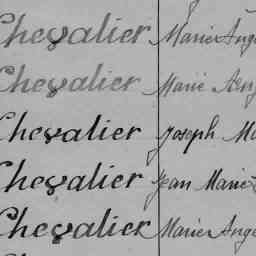 Chevalier Marie Ang
Chevalier Marie Ang
Chevalier Joseph Ma
Chevalier Jean Marie
Chevalier Marie Ange